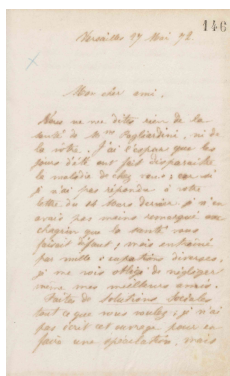 146
Versailles 27 Mai 72.
Mon cher ami,
Vous ne me dites rien de la
santé de Mme Pagliardini, ni de
la vôtre. J'ai l'espoir que les
jours d'été ont fait disparaître
la maladie de chez vous; car si
je n'ai pas répondu à votre
lettre du 11 Mars dernier je n'en
avais pas moins remarqué avec
chagrin que la santé vous
faisait défaut; mais entraîné
par mille occupations diverses,
je me vois obligé de négliger
même mes meilleurs amis.
Faites de Solutions Sociales
tout ce que vous voulez; je n'ai
pas écrit cet ouvrage pour en
faire une spéculation, mais